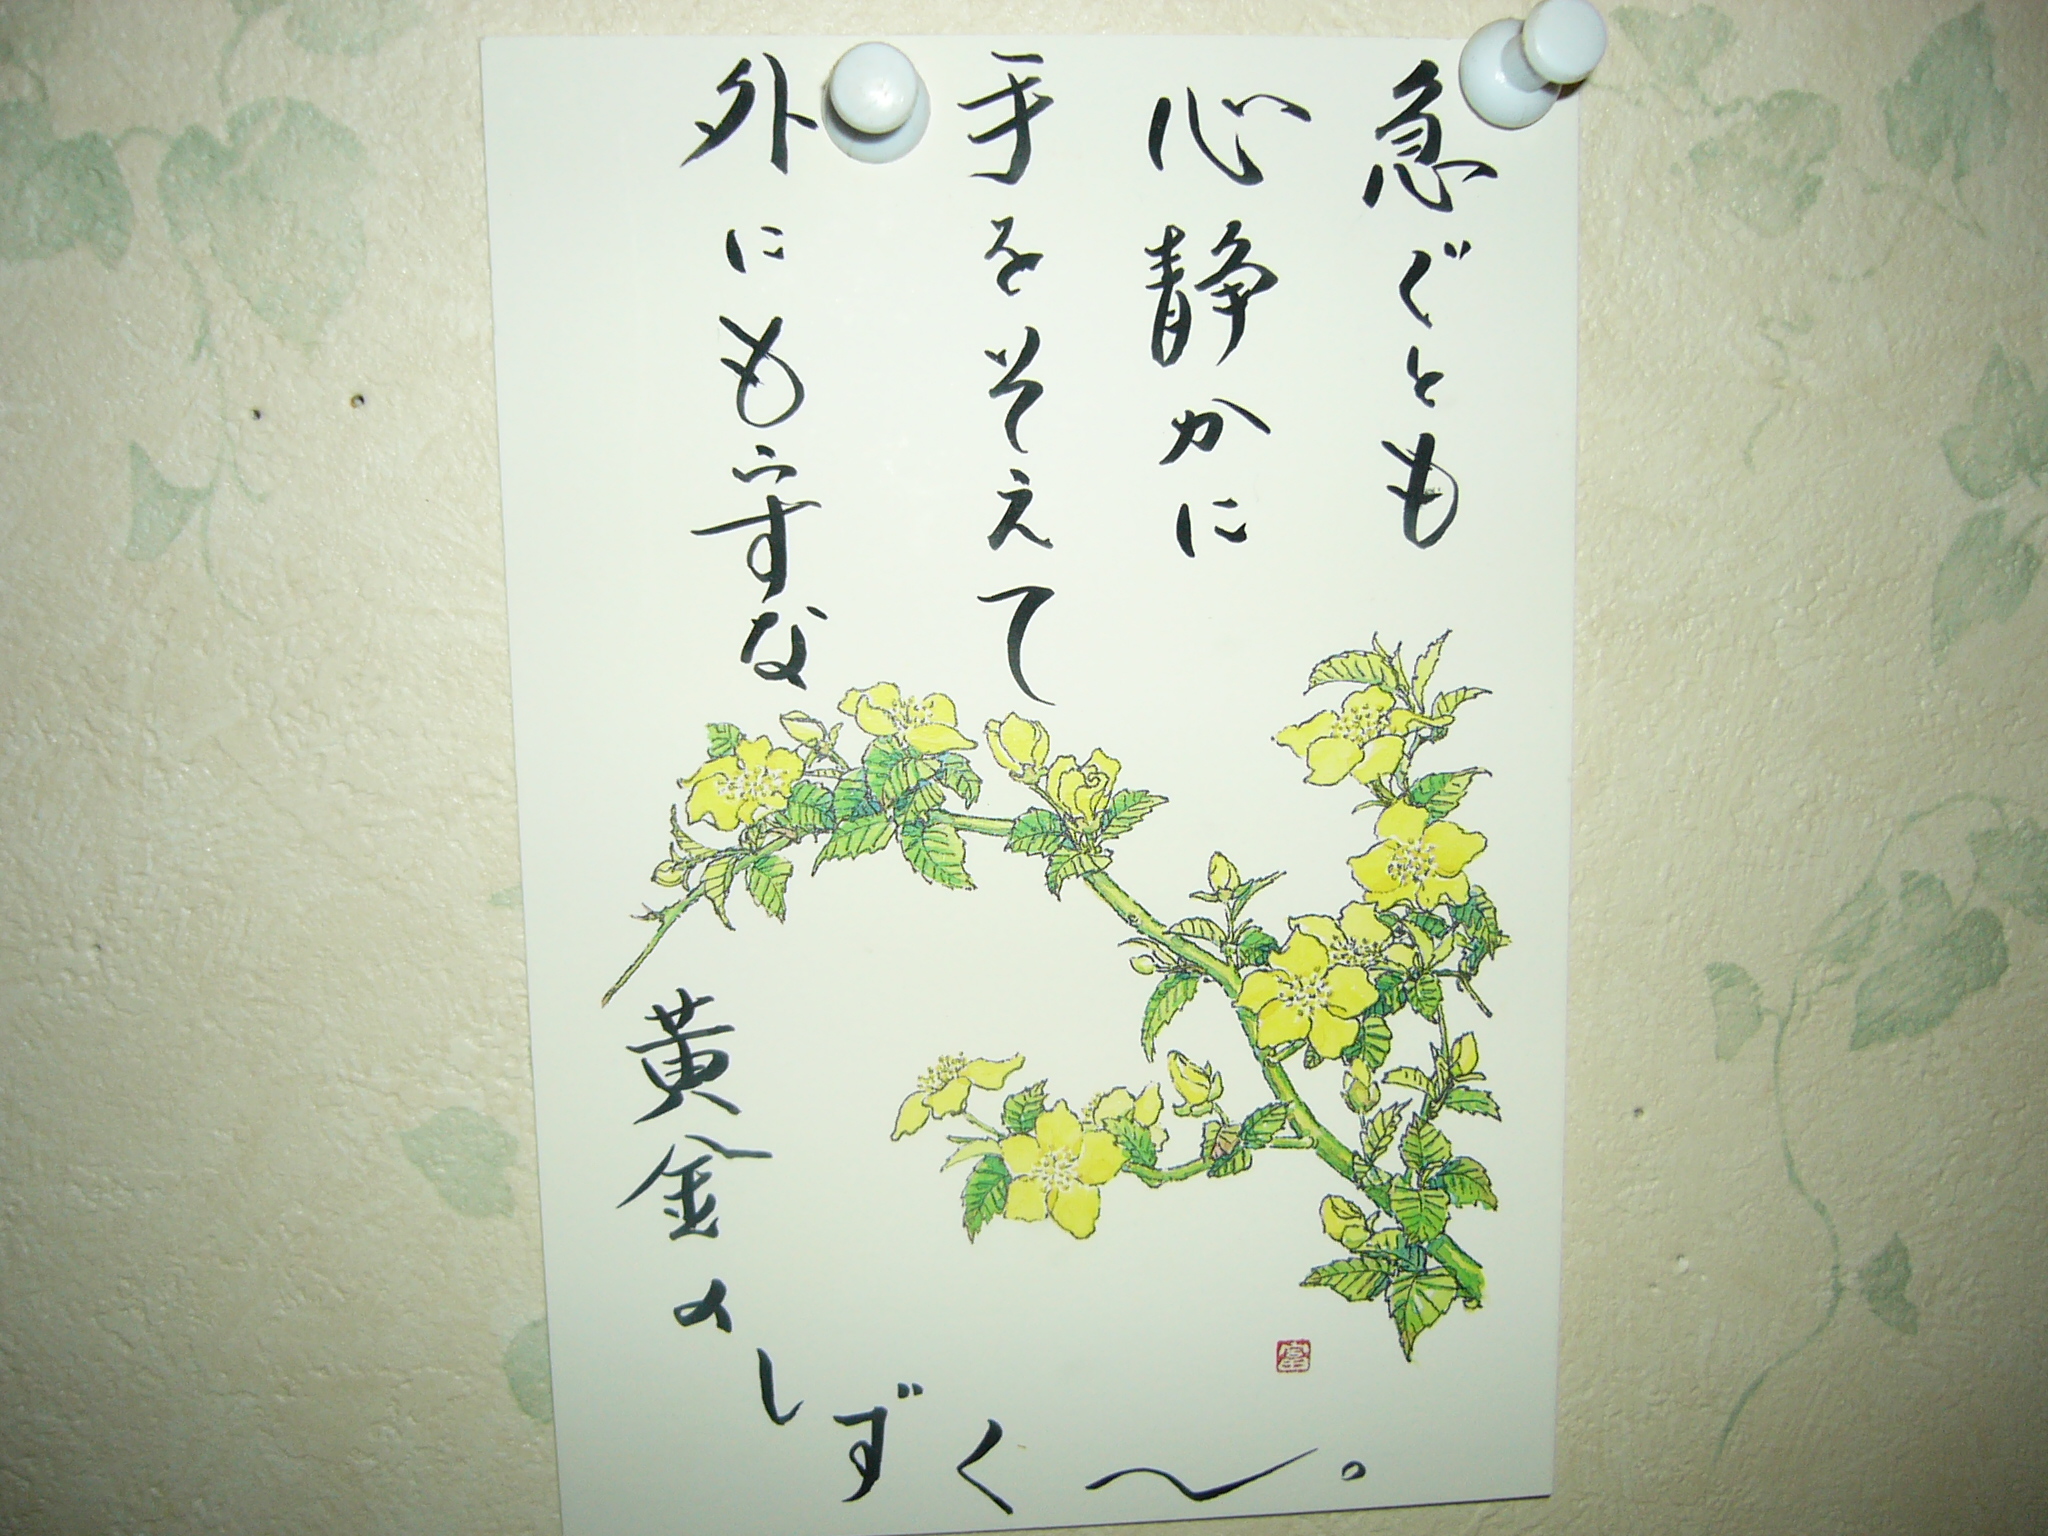 急ぐとも
心静かに
手をそえて
外にもらすな
黄金のしずく〜。
富